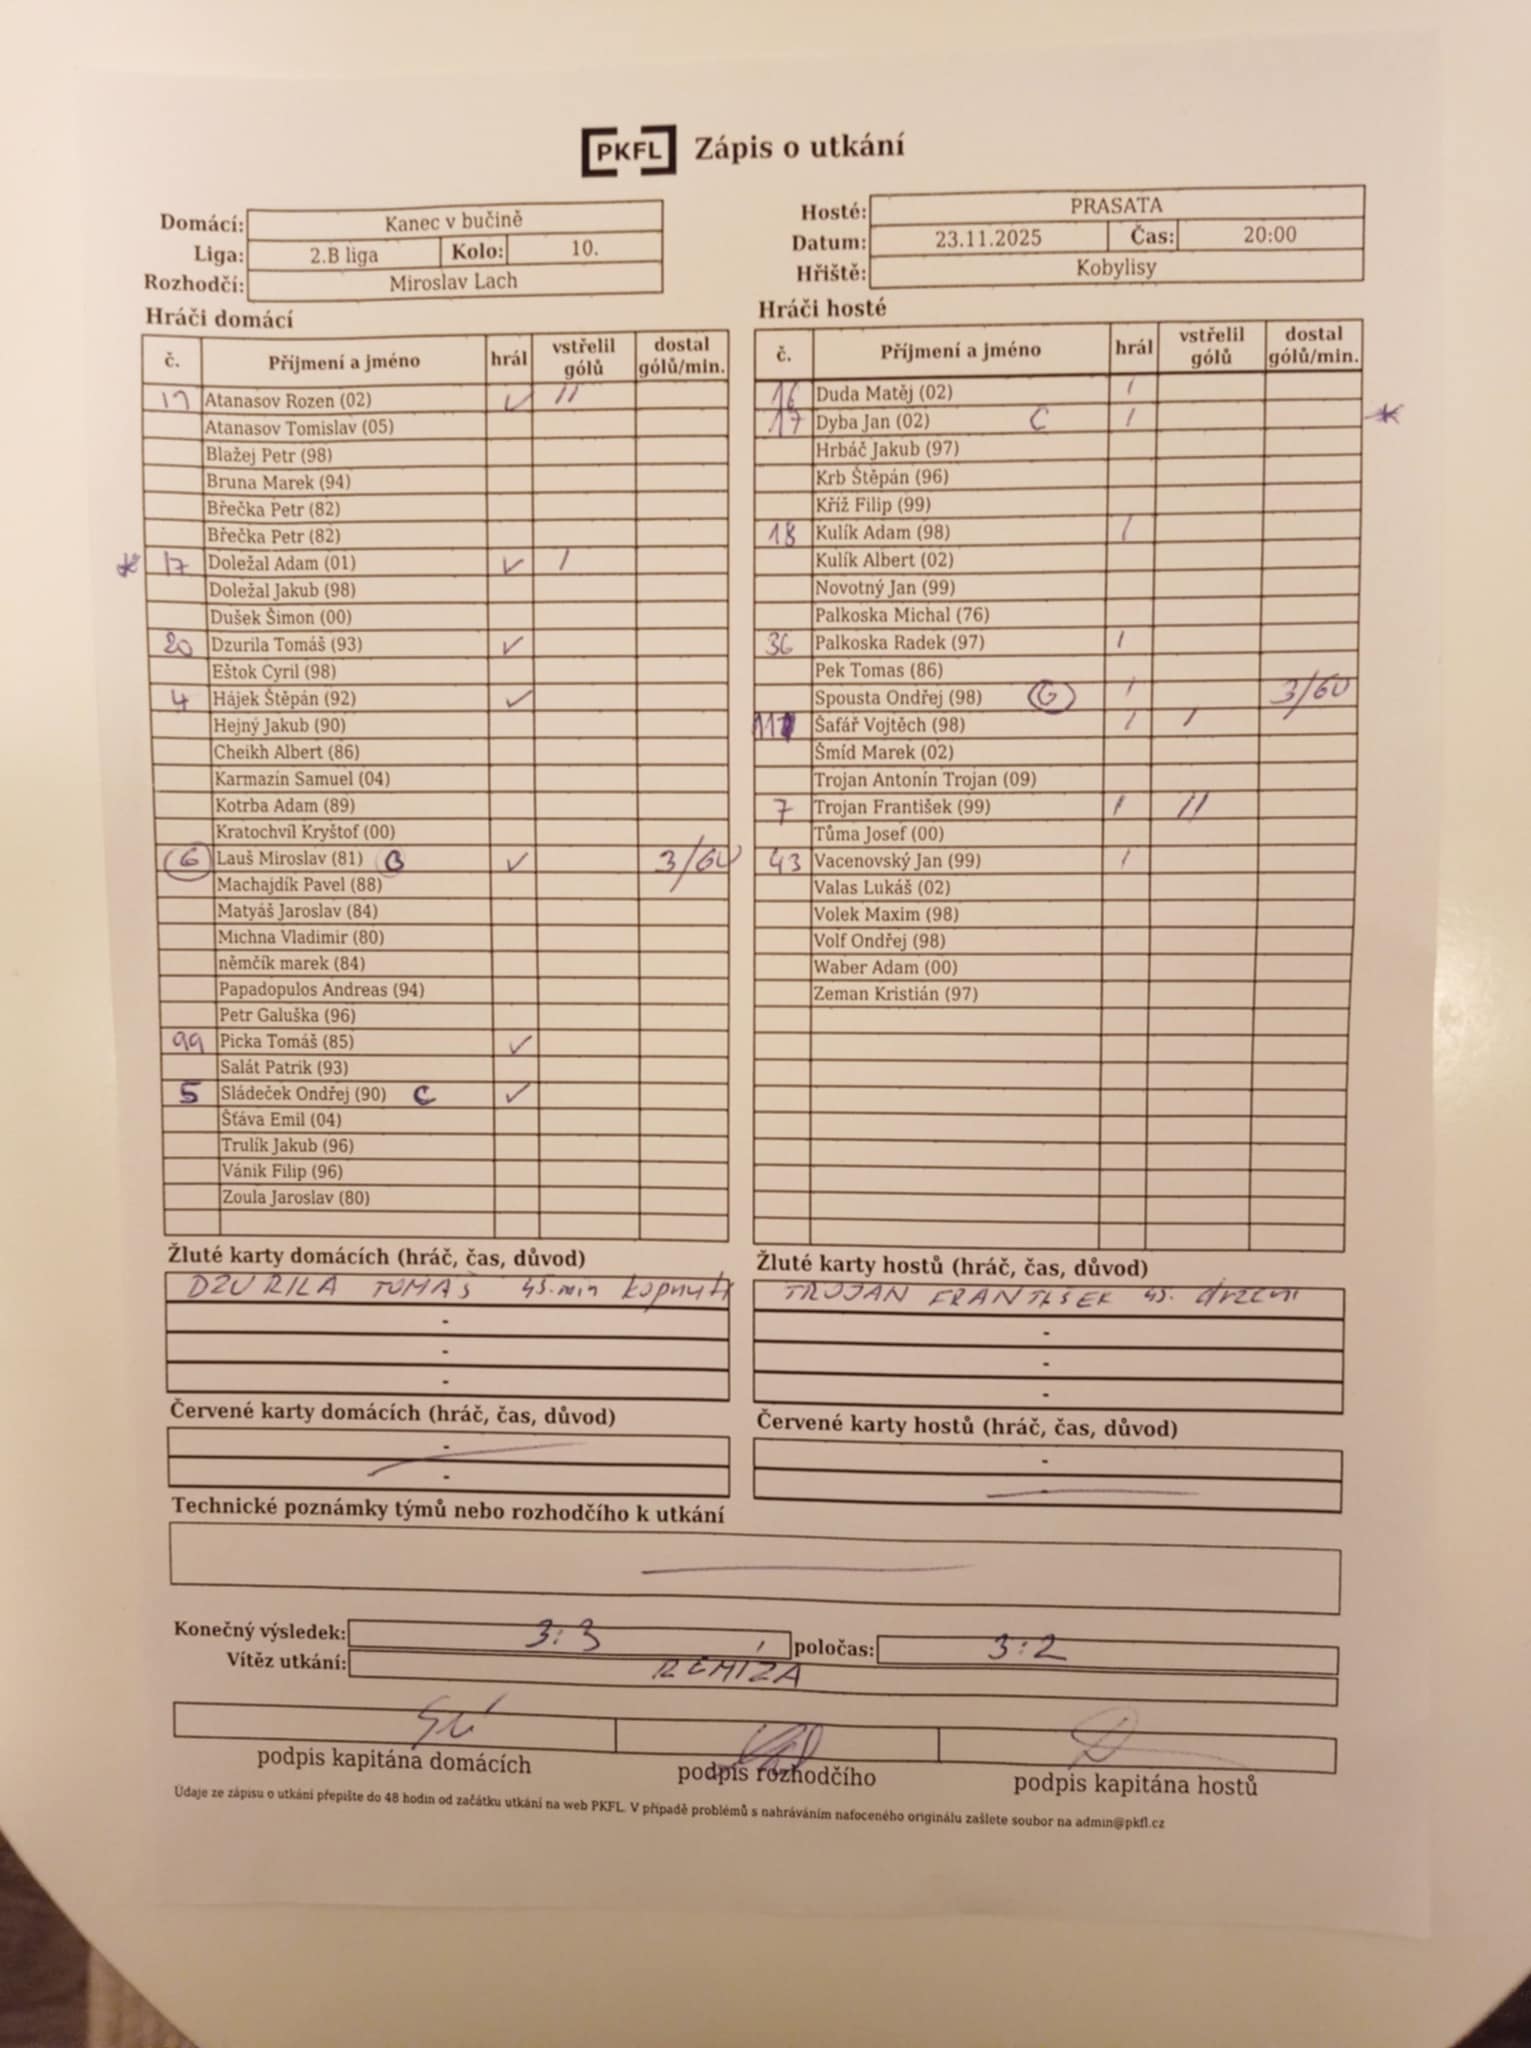 PKFL Zápis o utkání
Domácí: Kanec v bučině
Liga: 2.B liga Kolo: 10.
Rozhodčí: Miroslav Lach
Hosté: PRASATA
Datum: 23.11.2025 Čas: 20:00
Hřiště: Kobylisy
Hráči domácí
č. Příjmení a jméno hrál vstřelil gólů dostal gólů/min.
Atanasov Rozen (02) ✓ //
Atanasov Tomislav (05)
Blažej Petr (98)
Bruna Marek (94)
Břečka Petr (82)
Břečka Petr (82)
* 17 Doležal Adam (01) ✓ /
Doležal Jakub (98)
Dušek Šimon (00)
20 Dzurila Tomáš (93) ✓
Eštok Cyril (98)
4 Hájek Štěpán (92) ✓
Hejný Jakub (90)
Cheikh Albert (86)
Karmazín Samuel (04)
Kotrba Adam (89)
Kratochvíl Kryštof (00)
Lauš Miroslav (81) ✓ 3/60
Machajdík Pavel (88)
Matyáš Jaroslav (84)
Michna Vladimir (80)
němčík marek (84)
Papadopulos Andreas (94)
Petr Galuška (96)
99 Picka Tomáš (85) ✓
Salát Patrik (93)
5 Sládeček Ondřej (90) C ✓
Šťáva Emil (04)
Trulík Jakub (96)
Váník Filip (96)
Zoula Jaroslav (80)
Hráči hosté
č. Příjmení a jméno hrál vstřelil gólů dostal gólů/min.
16 Duda Matěj (02) /
17 Dyba Jan (02) C / *
Hrbáč Jakub (97)
Krb Štěpán (96)
Kříž Filip (99)
18 Kulík Adam (98) /
Kulík Albert (02)
Novotný Jan (99)
Palkoska Michal (76)
36 Palkoska Radek (97) /
Pek Tomas (86)
Spousta Ondřej (98) G / 3/60
Šafář Vojtěch (98) / /
Šmíd Marek (02)
Trojan Antonín Trojan (09)
7 Trojan František (99) / //
Tůma Josef (00)
43 Vacenovský Jan (99) /
Valas Lukáš (02)
Volek Maxim (98)
Volf Ondřej (98)
Waber Adam (00)
Zeman Kristián (97)
Žluté karty domácích (hráč, čas, důvod)
DZURILA TOMÁŠ 45.min kopnutí
-
-
-
Žluté karty hostů (hráč, čas, důvod)
TROJAN FRANTIŠEK 45. držení
-
-
-
Červené karty domácích (hráč, čas, důvod)
-
-
Červené karty hostů (hráč, čas, důvod)
-
-
Technické poznámky týmů nebo rozhodčího k utkání
Konečný výsledek: 3:3 poločas: 3:2
Vítěz utkání: REMÍZA
podpis kapitána domácích podpis rozhodčího podpis kapitána hostů
Údaje ze zápisu o utkání přepište do 48 hodin od začátku utkání na web PKFL. V případě problémů s nahráváním nafoceného originálu zašlete soubor na admin@pkfl.cz